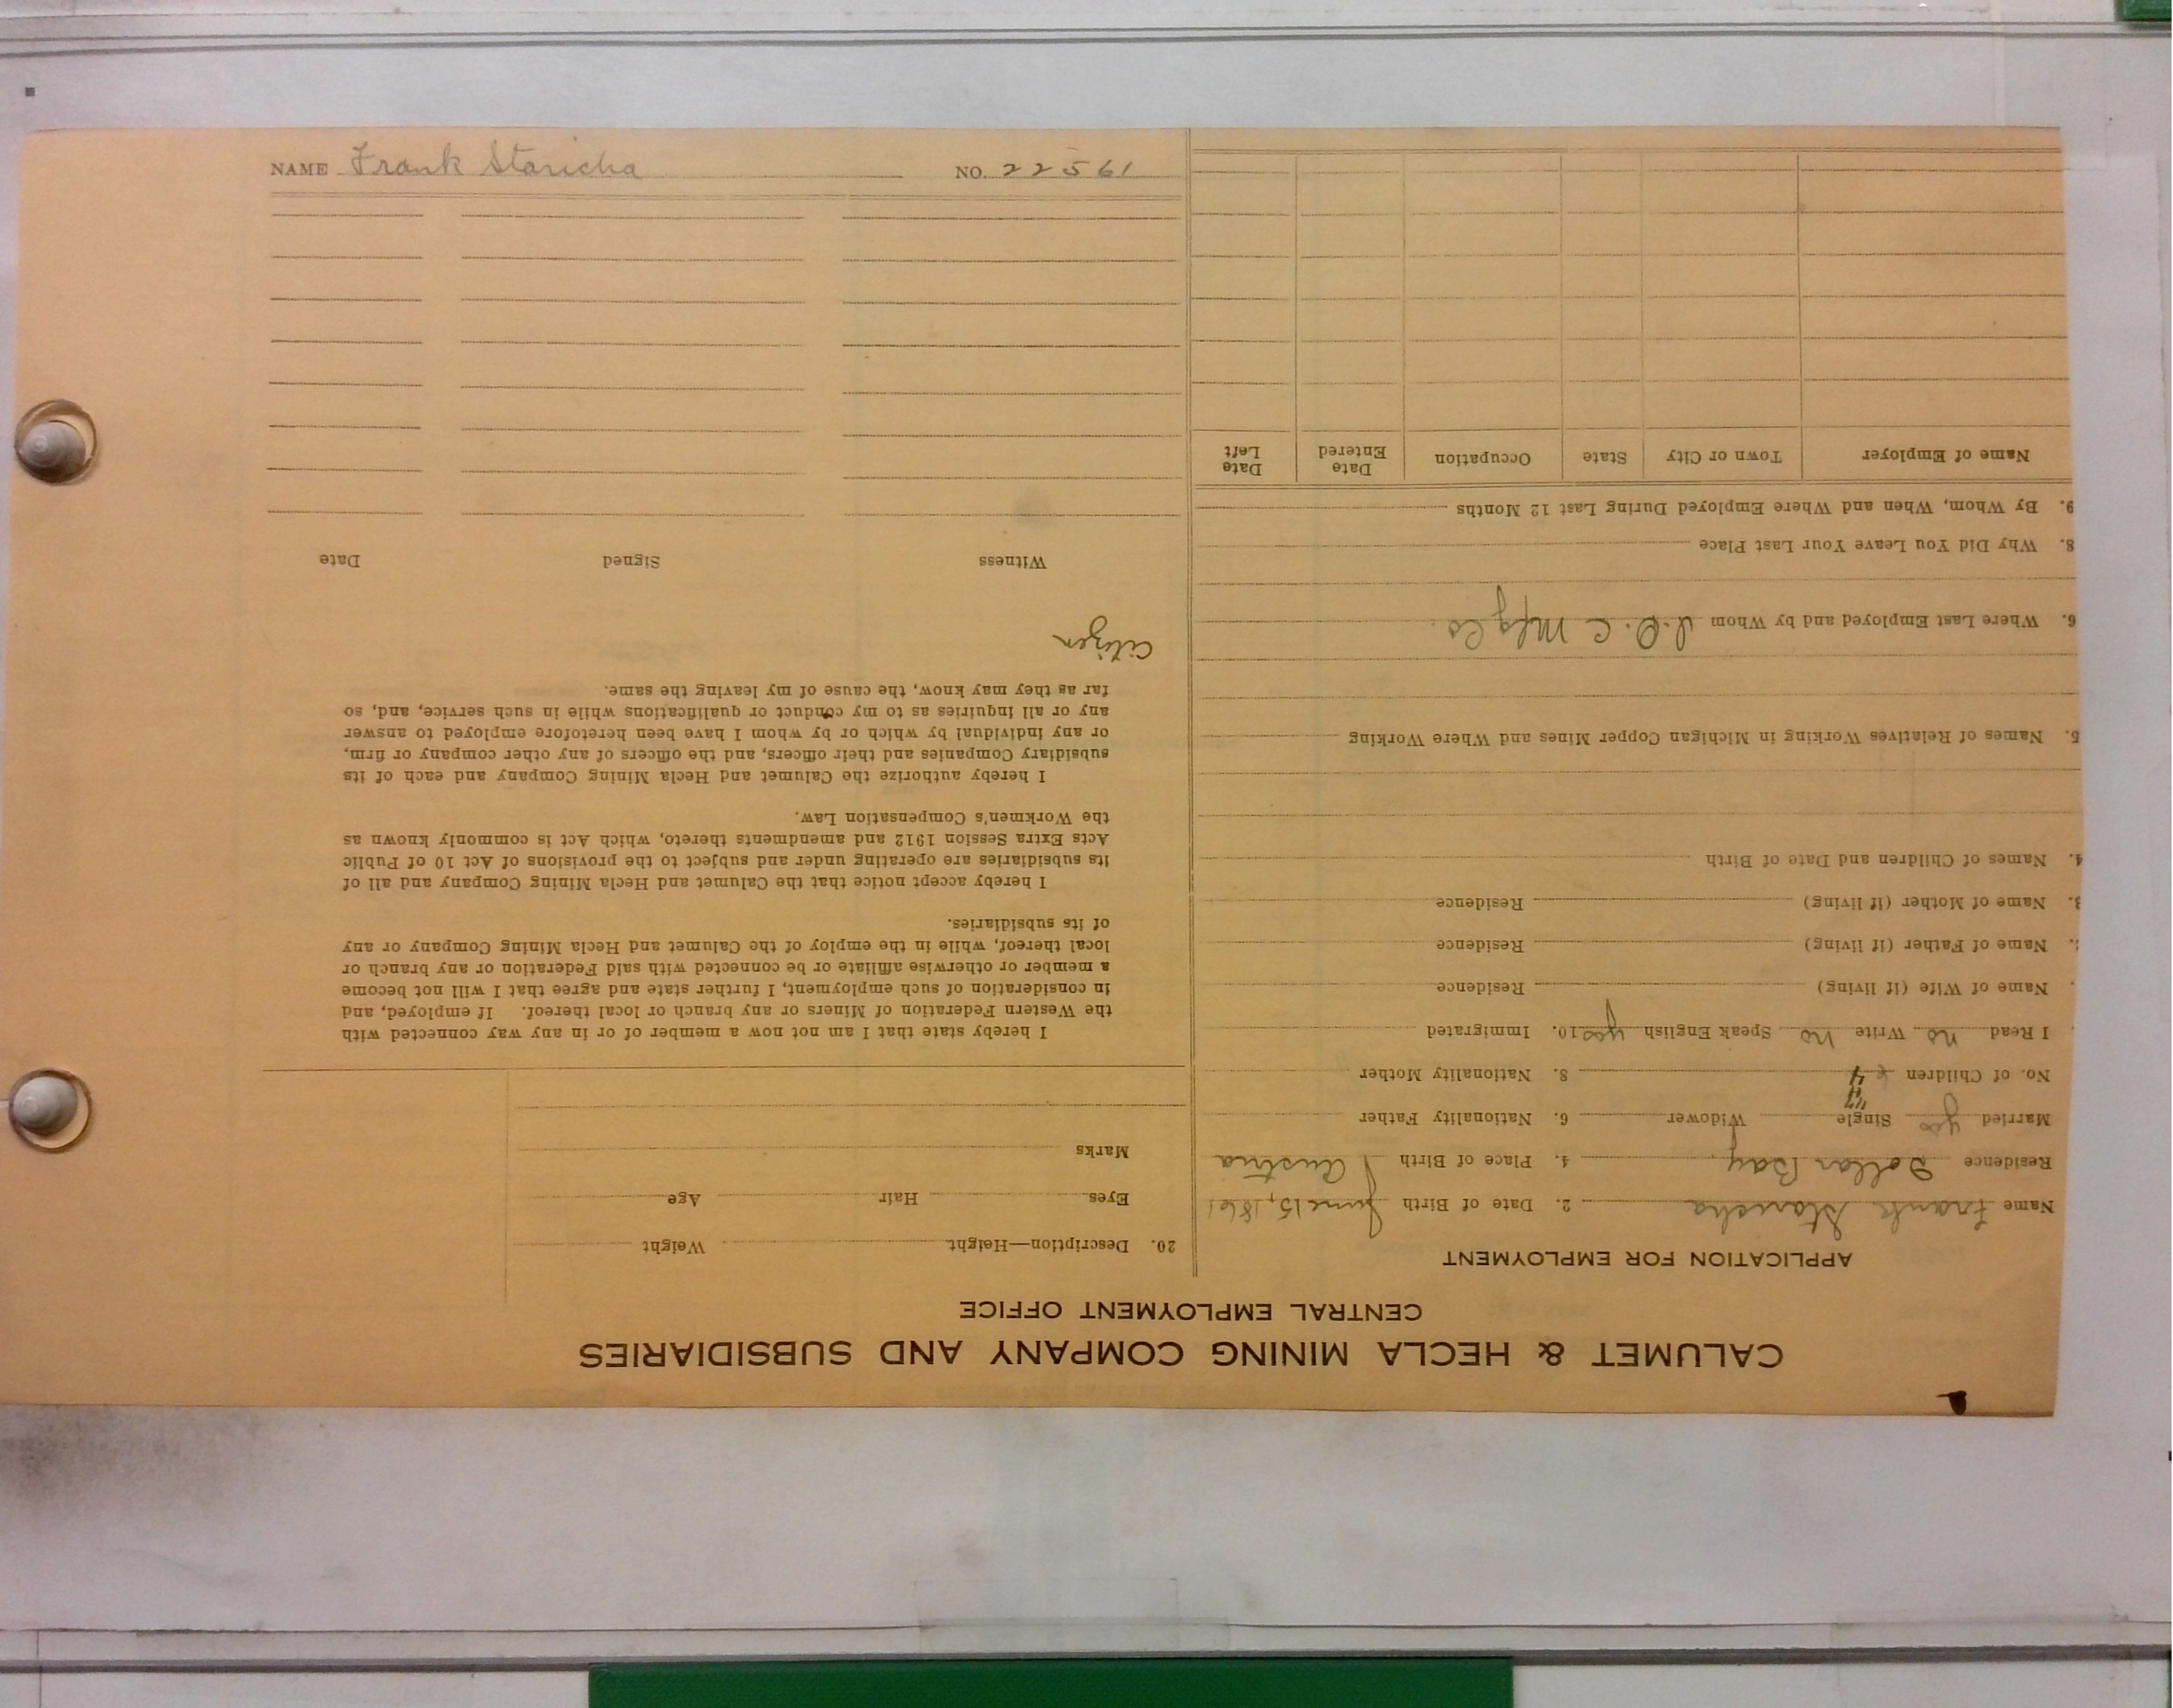 NAME Frank Staricha NO. 22561
CALUMET & HECLA MINING COMPANY AND SUBSIDIARIES
CENTRAL EMPLOYMENT OFFICE
APPLICATION FOR EMPLOYMENT
Name Frank Staricha 2. Date of Birth June 15, 1861
Residence Dollar Bay 4. Place of Birth Austria
Married yes Single Widower 6. Nationality Father
No. of Children 4 8. Nationality Mother
I Read no Write no Speak English yes 10. Immigrated
Name of Wife (if living) Residence
Name of Father (if living) Residence
3. Name of Mother (if living) Residence
4. Names of Children and Date of Birth
5. Names of Relatives Working in Michigan Copper Mines and Where Working
6. Where Last Employed and by Whom Mfg Co.
8. Why Did You Leave Your Last Place
9. By Whom, When and Where Employed During Last 12 Months
Name of Employer Town or City State Occupation Date Entered Date Left
20. Description—Height Weight
Eyes Hair Age
Marks
I hereby state that I am not now a member of or in any way connected with
the Western Federation of Miners or any branch or local thereof. If employed, and
in consideration of such employment, I further state and agree that I will not become
a member or otherwise affiliate or be connected with said Federation or any branch or
local thereof, while in the employ of the Calumet and Hecla Mining Company or any
of its subsidiaries.
I hereby accept notice that the Calumet and Hecla Mining Company and all of
its subsidiaries are operating under and subject to the provisions of Act 10 of Public
Acts Extra Session 1912 and amendments thereto, which Act is commonly known as
the Workmen's Compensation Law.
I hereby authorize the Calumet and Hecla Mining Company and each of its
subsidiary Companies and their officers, and the officers of any other company or firm,
or any individual by which or by whom I have been heretofore employed to answer
any or all inquiries as to my conduct or qualifications while in such service, and, so
far as they may know, the cause of my leaving the same.
Citizen
Witness Signed Date